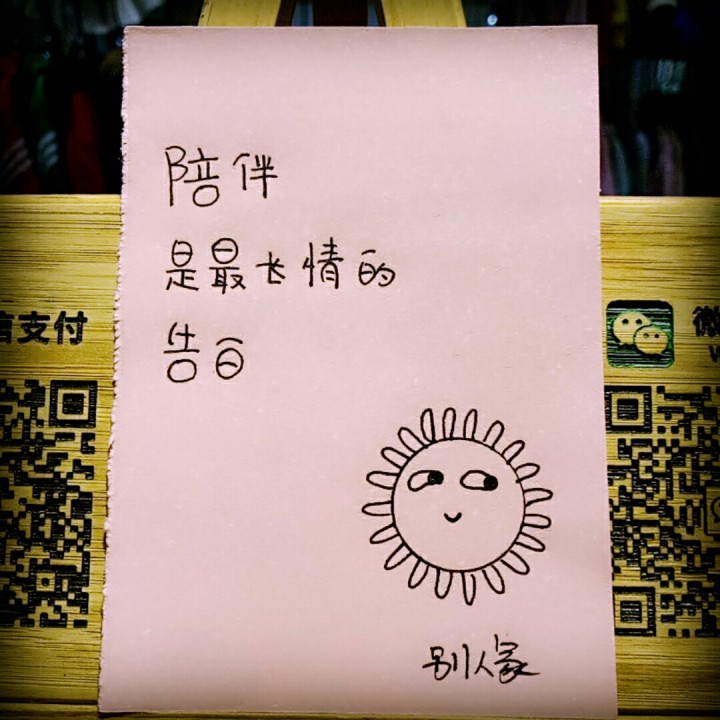 陪伴
是最长情的
告白
别人家
信支付
微